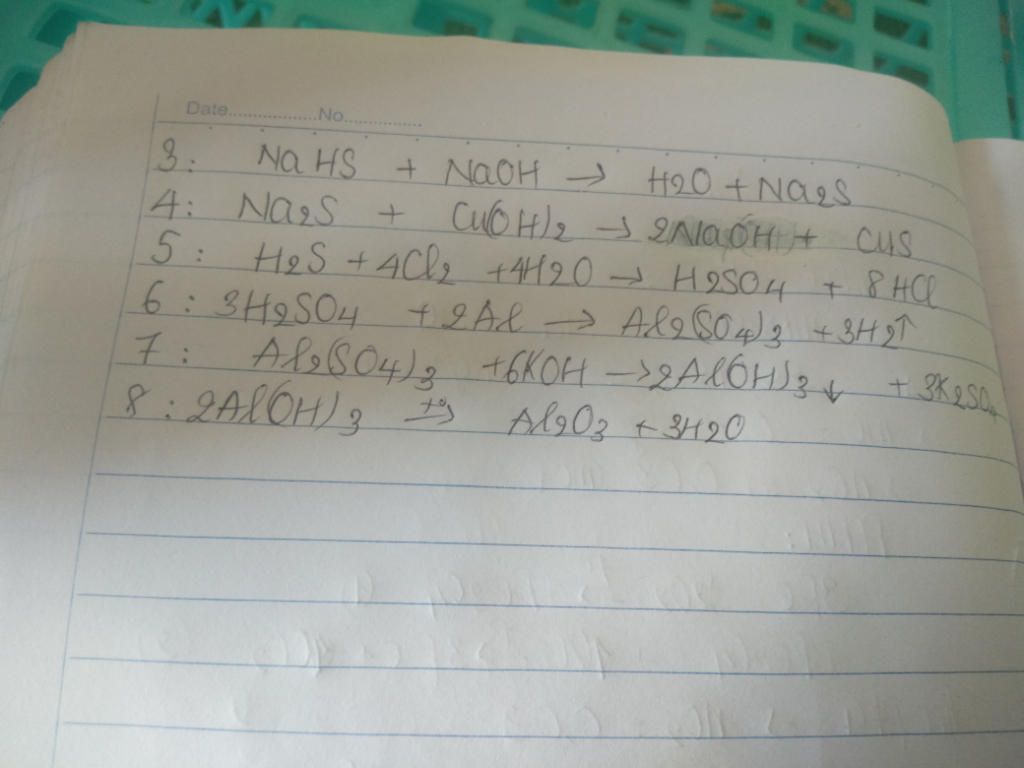 Date.................No...............
3: NaHS + NaOH → H2O + Na2S
4: Na2S + Cu(OH)2 → 2NaOH + CuS
5: H2S + 4Cl2 + 4H2O → H2SO4 + 8HCl
6: 3H2SO4 + 2Al → Al2(SO4)3 + 3H2↑
7: Al2(SO4)3 + 6KOH → 2Al(OH)3↓ + 3K2SO4
8: 2Al(OH)3 t°→ Al2O3 + 3H2O